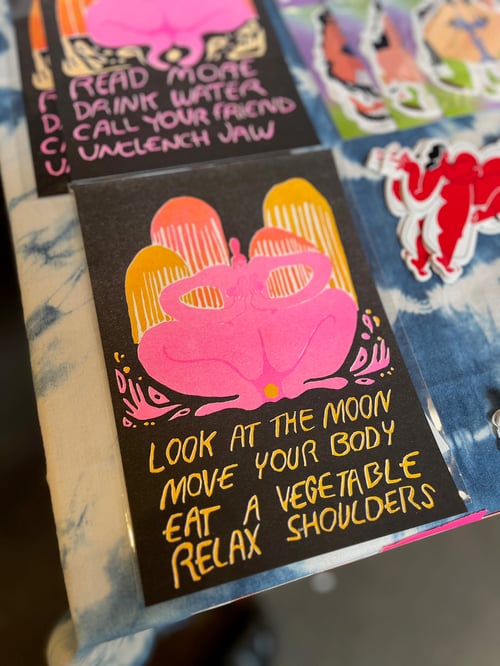 READ MORE
DRINK WATER
CALL YOUR FRIEND
UNCLENCH JAW
LOOK AT THE MOON
MOVE YOUR BODY
EAT A VEGETABLE
RELAX SHOULDERS